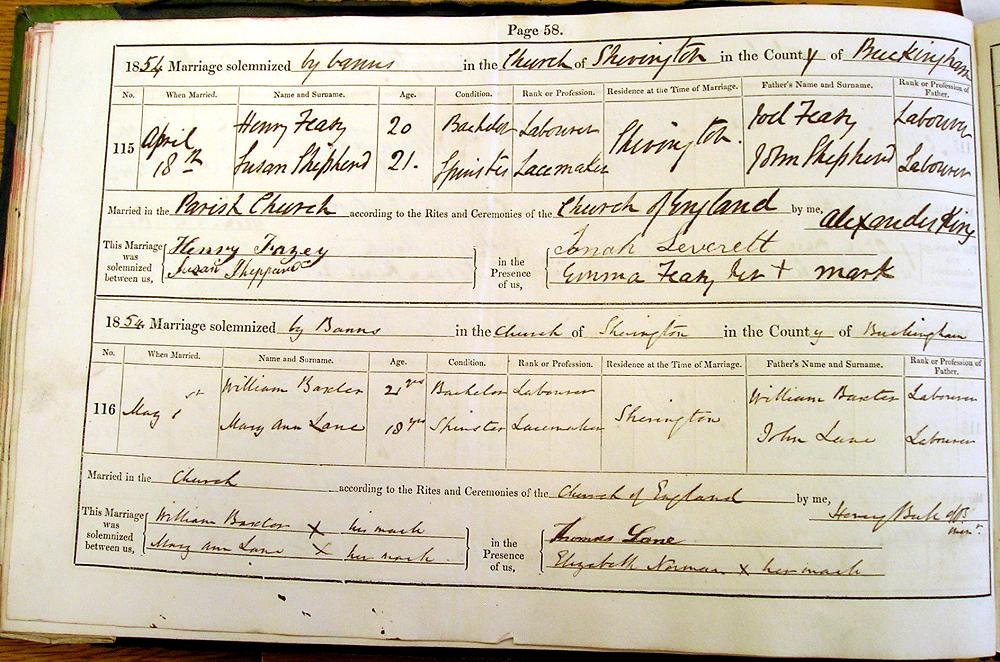 Page 58.
1854 Marriage solemnized by banns in the Church of Sherington in the County of Buckingham
No. When Married. Name and Surname. Age. Condition. Rank or Profession. Residence at the Time of Marriage. Father's Name and Surname. Rank or Profession of Father.
115 April 18th Henry Feazy 20 Bachelor Labourer Sherington. Joel Feazy Labourer
Susan Shepherd 21. Spinster Lacemaker John Shepherd Labourer
Married in the Parish Church according to the Rites and Ceremonies of the Church of England by me, Alexander King
This Marriage was solemnized between us, Henry Frazey in the Presence of us, Jonah Leverett
Susan Sheppard Emma Feazy her + mark
1854 Marriage solemnized by Banns in the Church of Sherington in the County of Buckingham
No. When Married. Name and Surname. Age. Condition. Rank or Profession. Residence at the Time of Marriage. Father's Name and Surname. Rank or Profession of Father.
116 May 1st William Baxter 21 yrs Bachelor Labourer Sherington William Baxter Labourer
Mary Ann Lane 18 yrs Spinster Lacemaker John Lane Labourer
Married in the Church according to the Rites and Ceremonies of the Church of England by me, Henry
This Marriage was solemnized between us, William Baxter X his mark in the Presence of us, Thomas Lane
Mary Ann Lane X her mark Elizabeth Norman X her mark